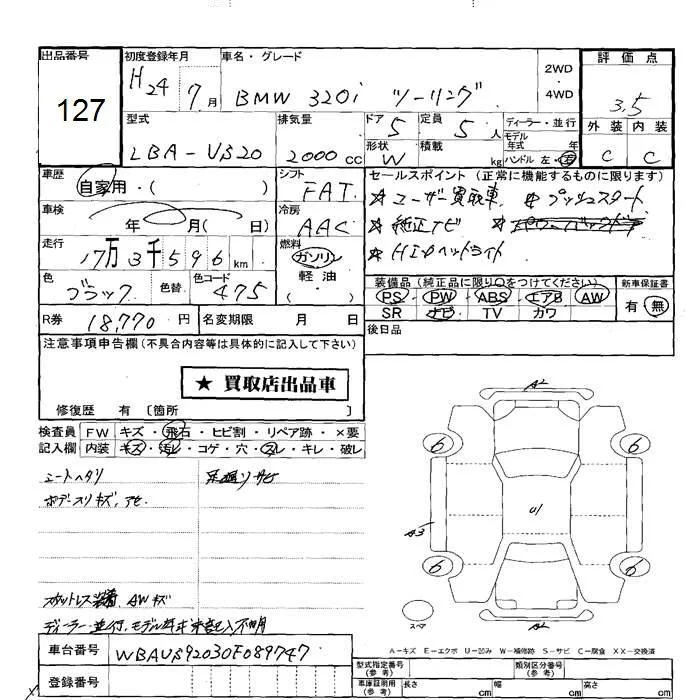 出品番号 127
初度登録年月 H24 7月
車名・グレード BMW 320i ツーリング
2WD
4WD
評価点 3.5
外装 内装
C C
型式 LBA-US20
排気量 2000cc
ドア 5
定員 5人
ディーラー・並行
モデル年式 年
ハンドル 左・右
形状 W
積載 kg
車歴 自家用・( )
シフト FAT
セールスポイント (正常に機能するものに限ります)
★ユーザー買取車 ★プッシュスタート
★純正ナビ
★HIDヘッドライト
車検 年 月( 日)
冷房 AAC
走行 17万3千596km
燃料 ガソリン・軽油
色 ブラック 色替
色コード 475
装備品 (純正品に限り○をつけてください) 新車保証書
PS・PW・ABS・エアB・AW 有・無
SR ナビ TV カワ
R券 18,770円 名変期限 月 日
後日品
注意事項申告欄(不具合内容等は具体的に記入して下さい)
★ 買取店出品車
修復歴 有 〔箇所 〕
検査員記入欄
FW キズ・飛石・ヒビ割・リペア跡・×要
内装 キズ・汚レ・コゲ・穴・スレ・キレ・破レ
シートヘタリ
ボデースリキズ,アセ
足廻リサビ
AWキズ
ディーラー並行,モデル年式
A2
6 6
U1
A3
6 6
スペア
A2
A-キズ E-エクボ U-凹み W-補修跡 S-サビ C-腐食 XX-交換済
車台番号 WBAUS92030F089747
登録番号
型式指定番号(参考) 類別区分番号(参考)
車庫証明用(参考) 長さ cm 幅 cm 高さ cm